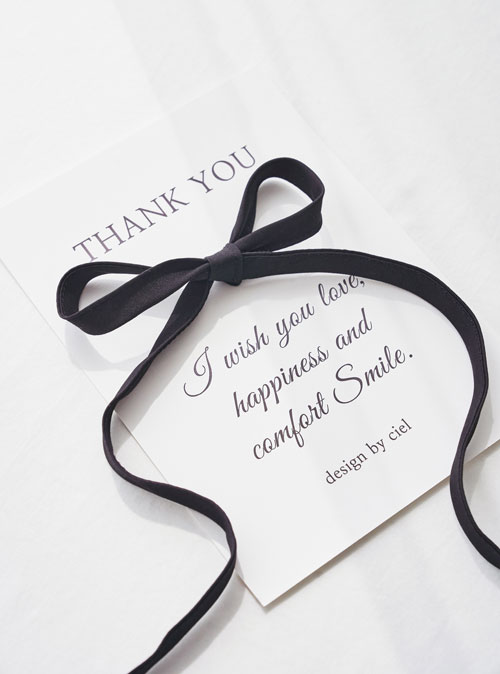 THANK YOU
I wish you love,
happiness and
comfort Smile.
design by ciel